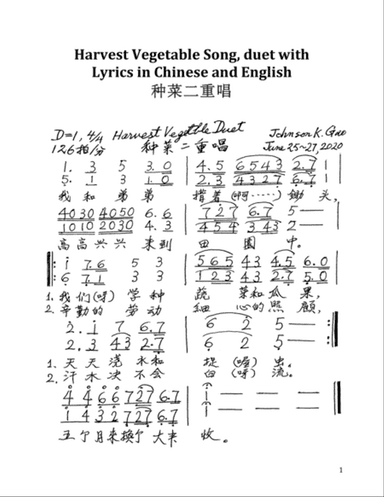 Harvest Vegetable Song, duet with
Lyrics in Chinese and English
种菜二重唱
D=1, 4/4 Harvest Vegettle Duet Johnson K. Gao
126拍/分 种菜二重唱 June 25~27, 2020
1. 3 5 3.0 | 4.5 6543 2.7 1
5. 1 3 1.0 | 2.3 4327 6.7 1
我和弟弟 (啊……) 锄头,
4030 4050 6.6 | 727 6.7 5—
1010 2030 4.3 | 454 343 2—
高高兴兴来到 田园中。
i 76 5 3 | 565 43 4.5 6.0
6 7.1 3 3 | 123 43 2.7 5.0
1. 我们(呀)学种 蔬菜和瓜果,
2. 辛勤的劳动 细心的照顾,
2. i 7 6.7 | 6 2 5—
2. 3 43 2.7 | 6 2 5—
1. 天天浇水和 捉(喔)虫。
2. 汗水决不会 白(呀)流。
4 4 6 6 7 27 6.7 | i — — —
1 4 3 2 7 27 6.7 | i — — —
五个月来换个大丰收。
1